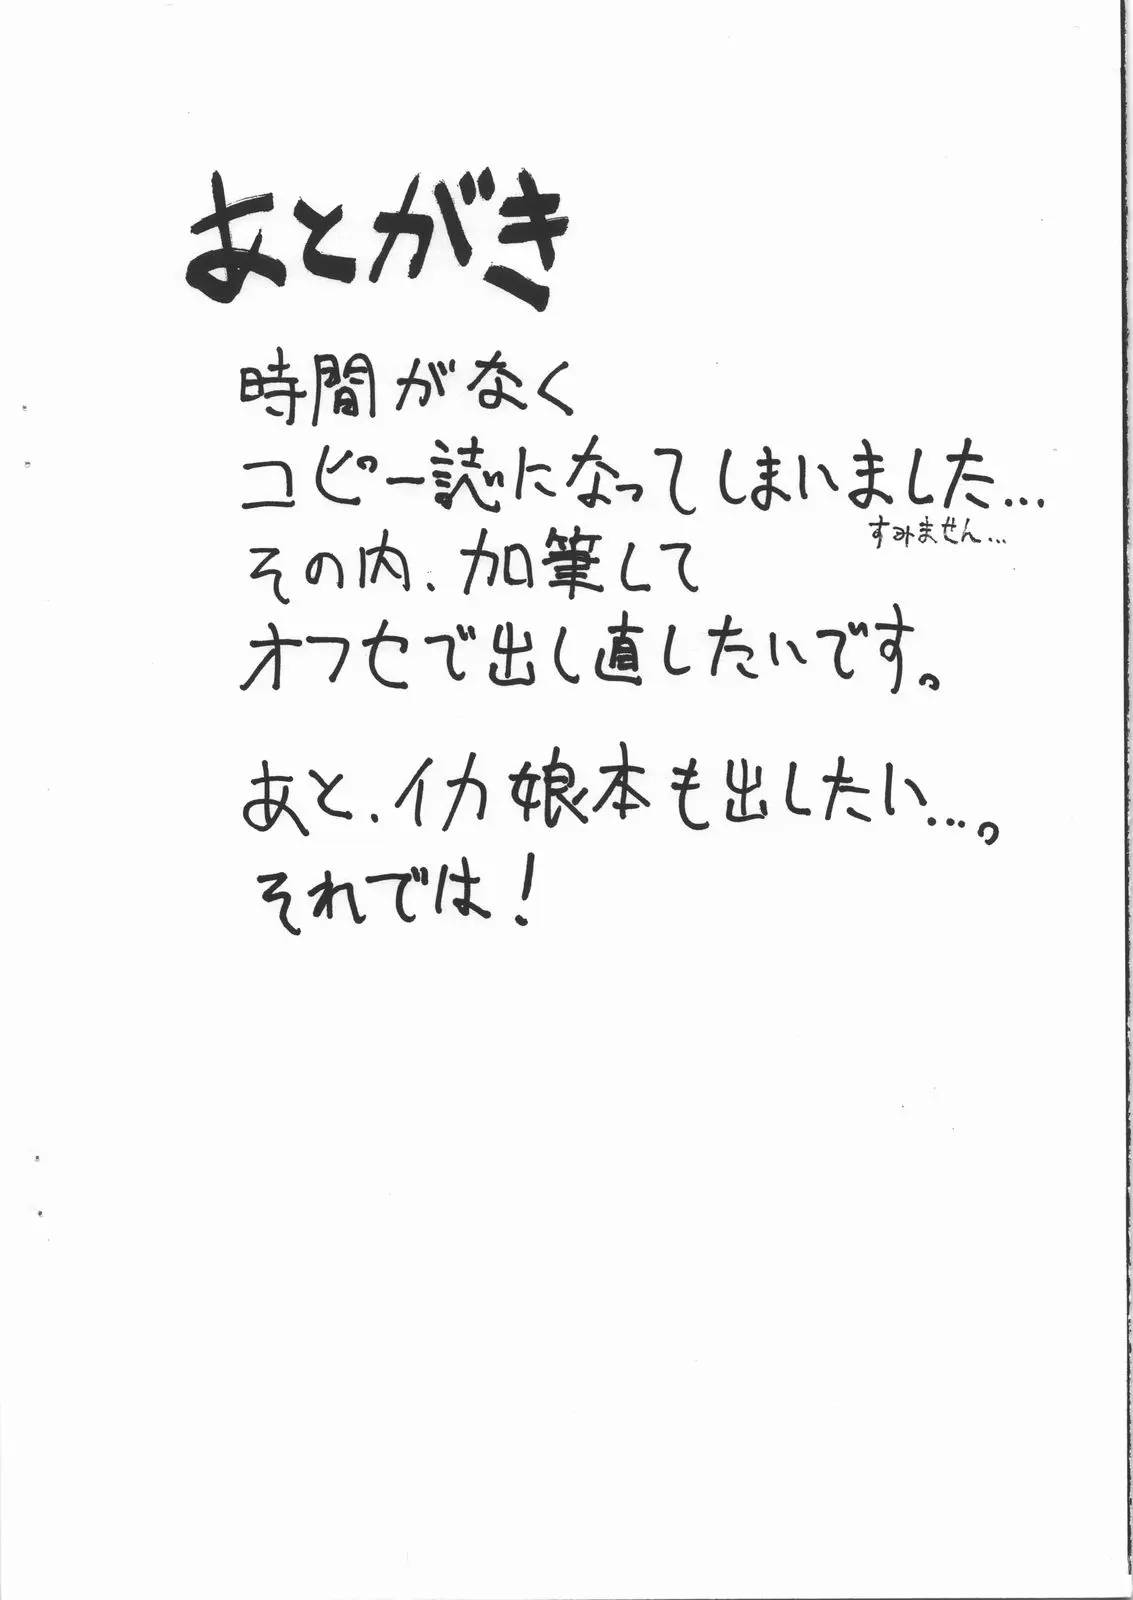 あとがき
時間がなく
コピー誌になってしまいました…
すみません…
その内、加筆して
オフセで出し直したいです。
あと、イカ娘本も出したい…。
それでは！